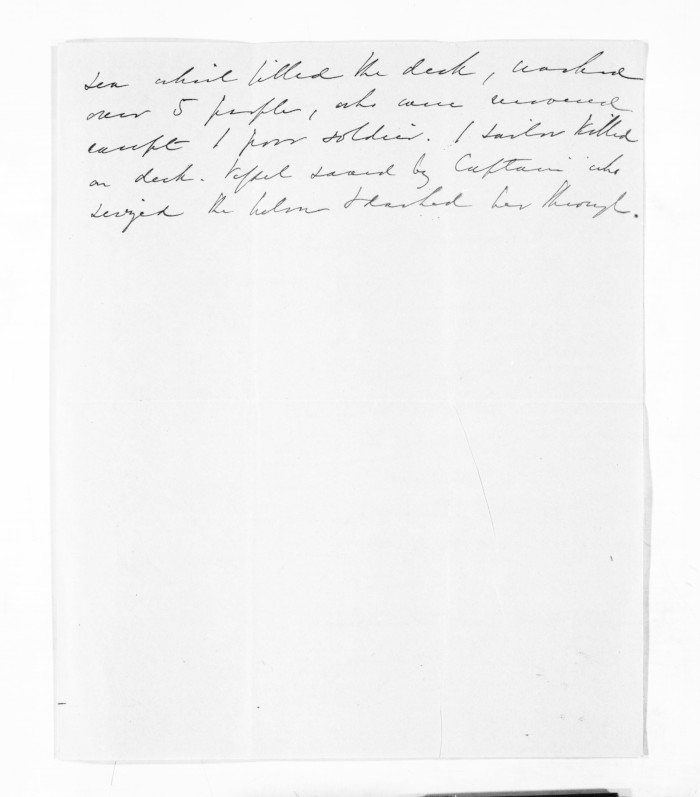 sea which filled the deck, washed
over 5 people, who were recovered
except 1 poor soldier. 1 sailor killed
on deck. Vessel saved by Captain who
seized the helm & dashed her through.